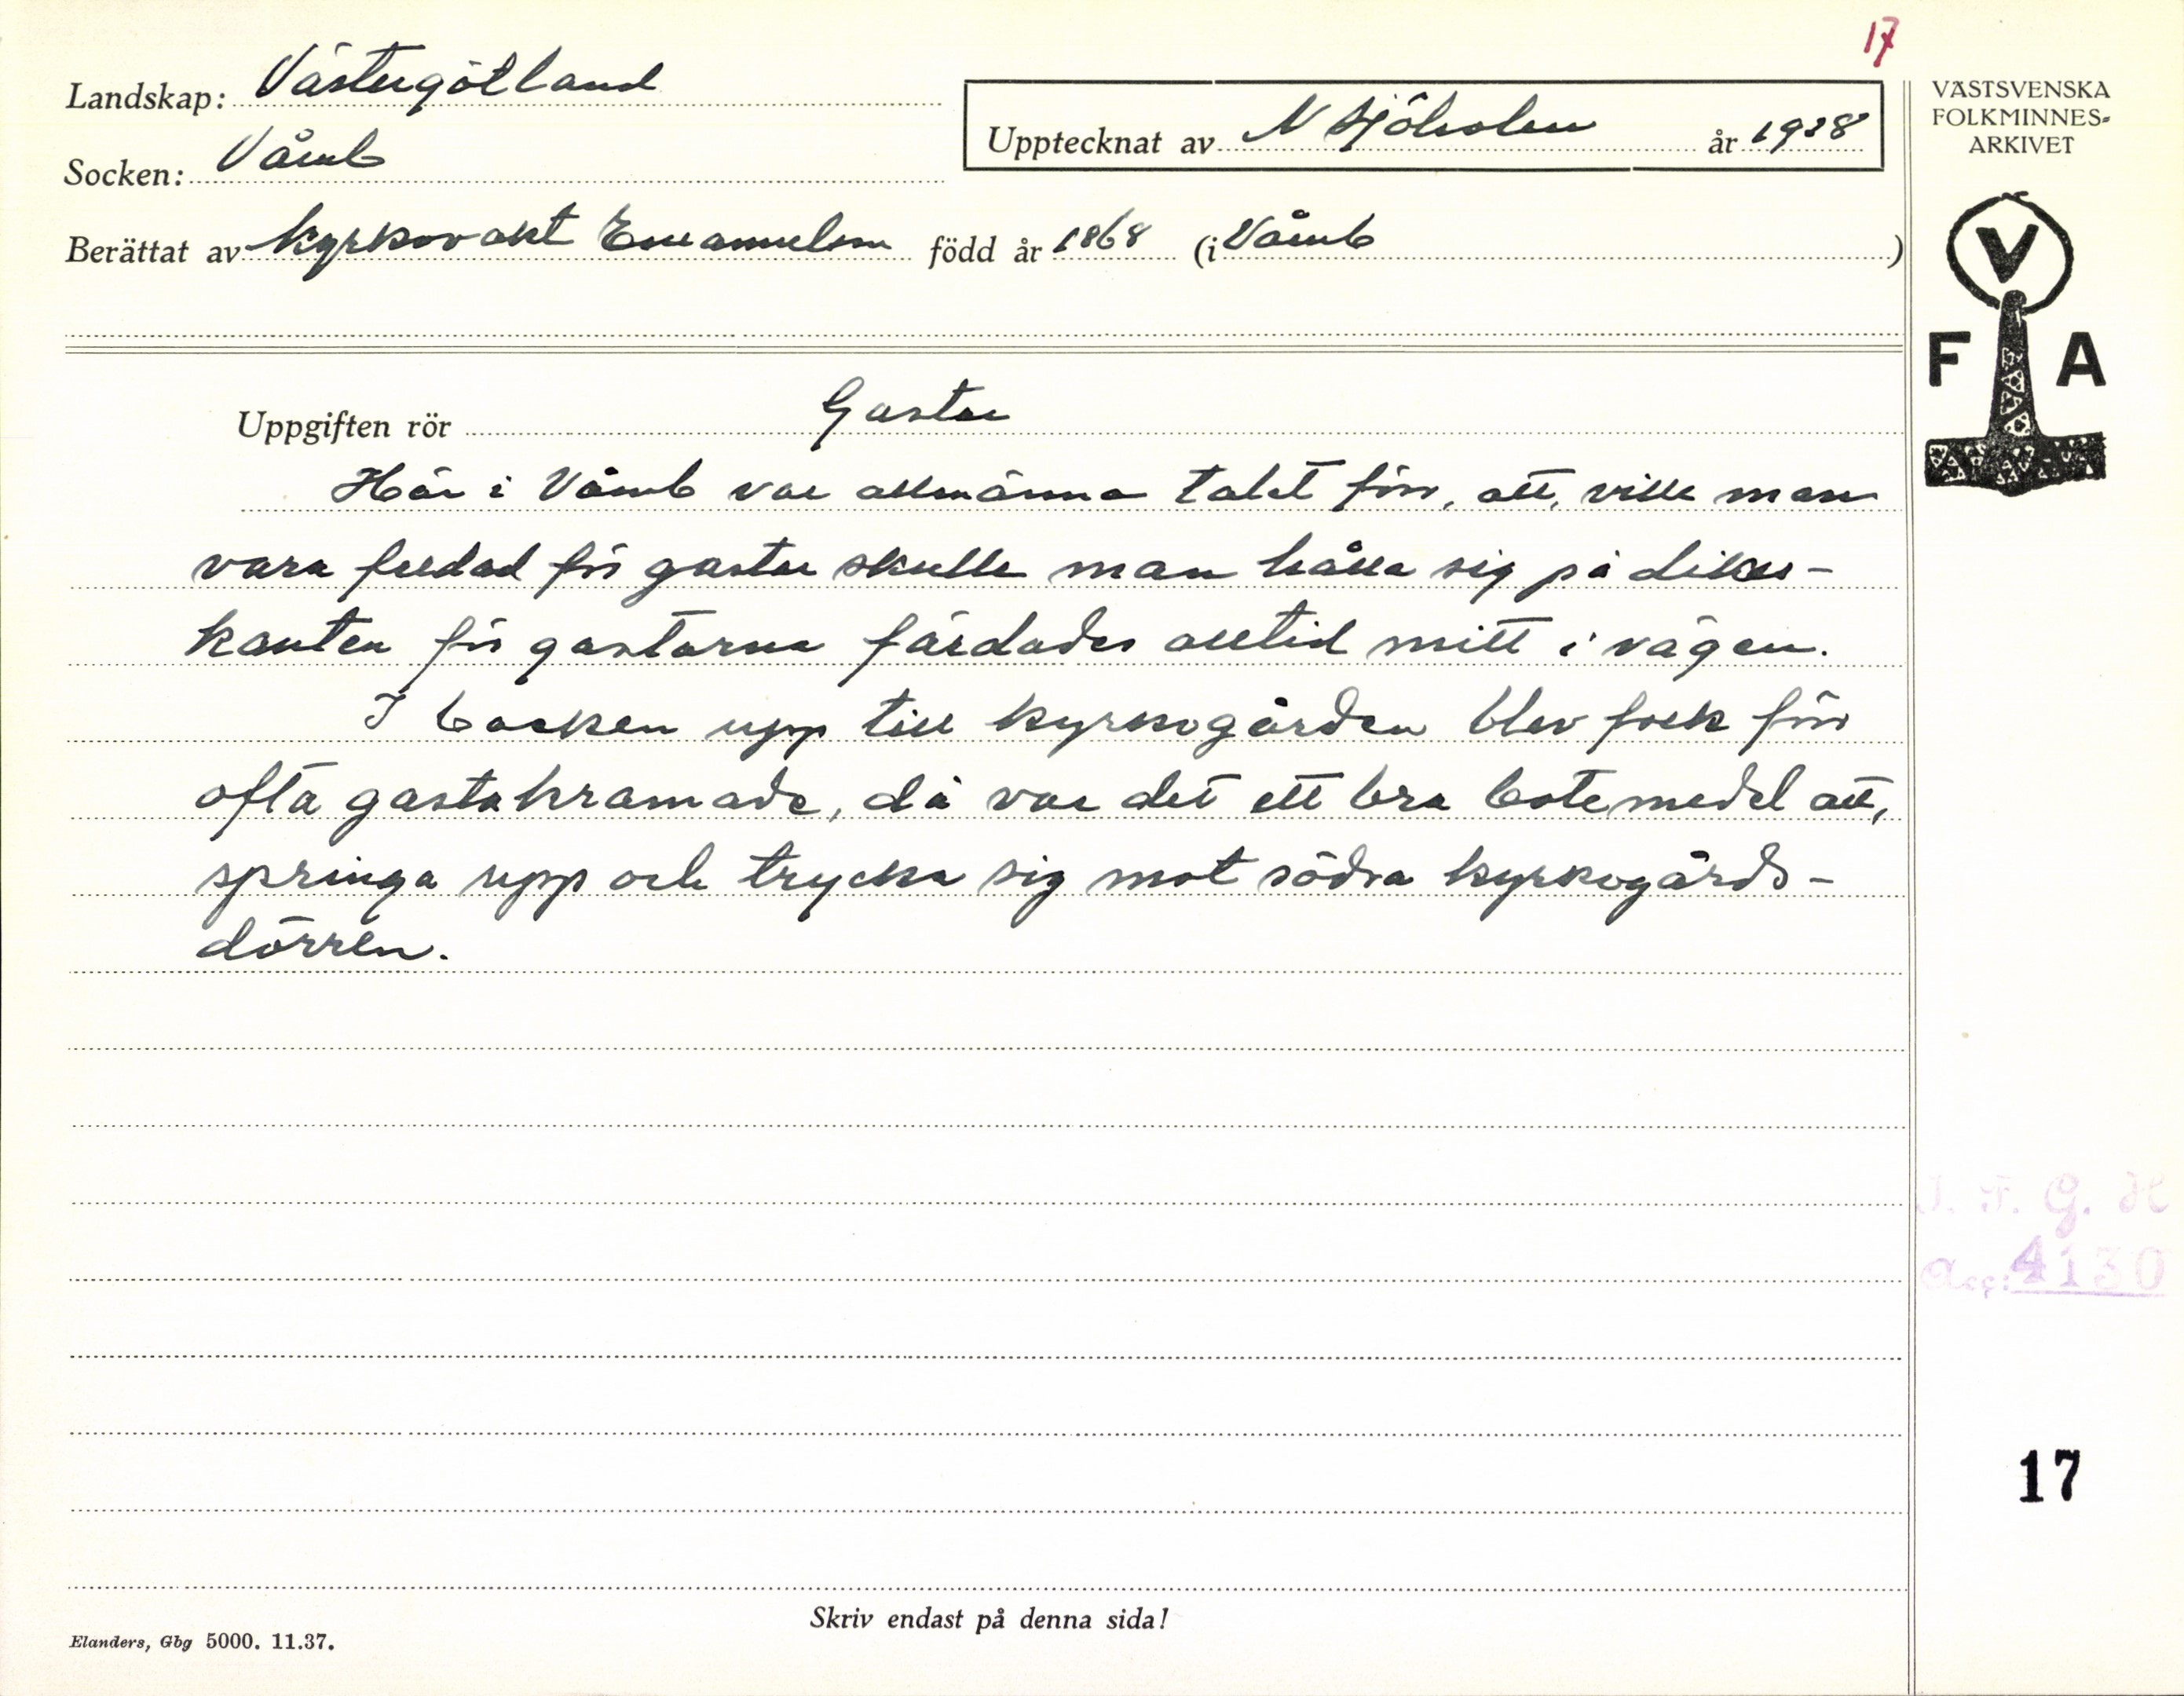 17
Landskap: Västergötland
Socken: Våmb
Upptecknat av N Sjöholm år 1938
Berättat av kyrkovakt Emanuelson född år 1868 (i Våmb)
VÄSTSVENSKA
FOLKMINNES-
ARKIVET
V
F A
Uppgiften rör Gastar
Här i Våmb var allmänna talet förr, att, ville man
vara fredad för gastar skulle man hålla sig på dikes-
kanten för gastarna färdades alltid mitt i vägen.
I backen upp till kyrkogården blev folk förr
ofta gastakramade, då var det ett bra botemedel att,
springa upp och trycka sig mot södra kyrkogårds-
dörren.
I. F. G. H
Acc: 4130
17
Skriv endast på denna sida!
Elanders, Gbg 5000. 11.37.